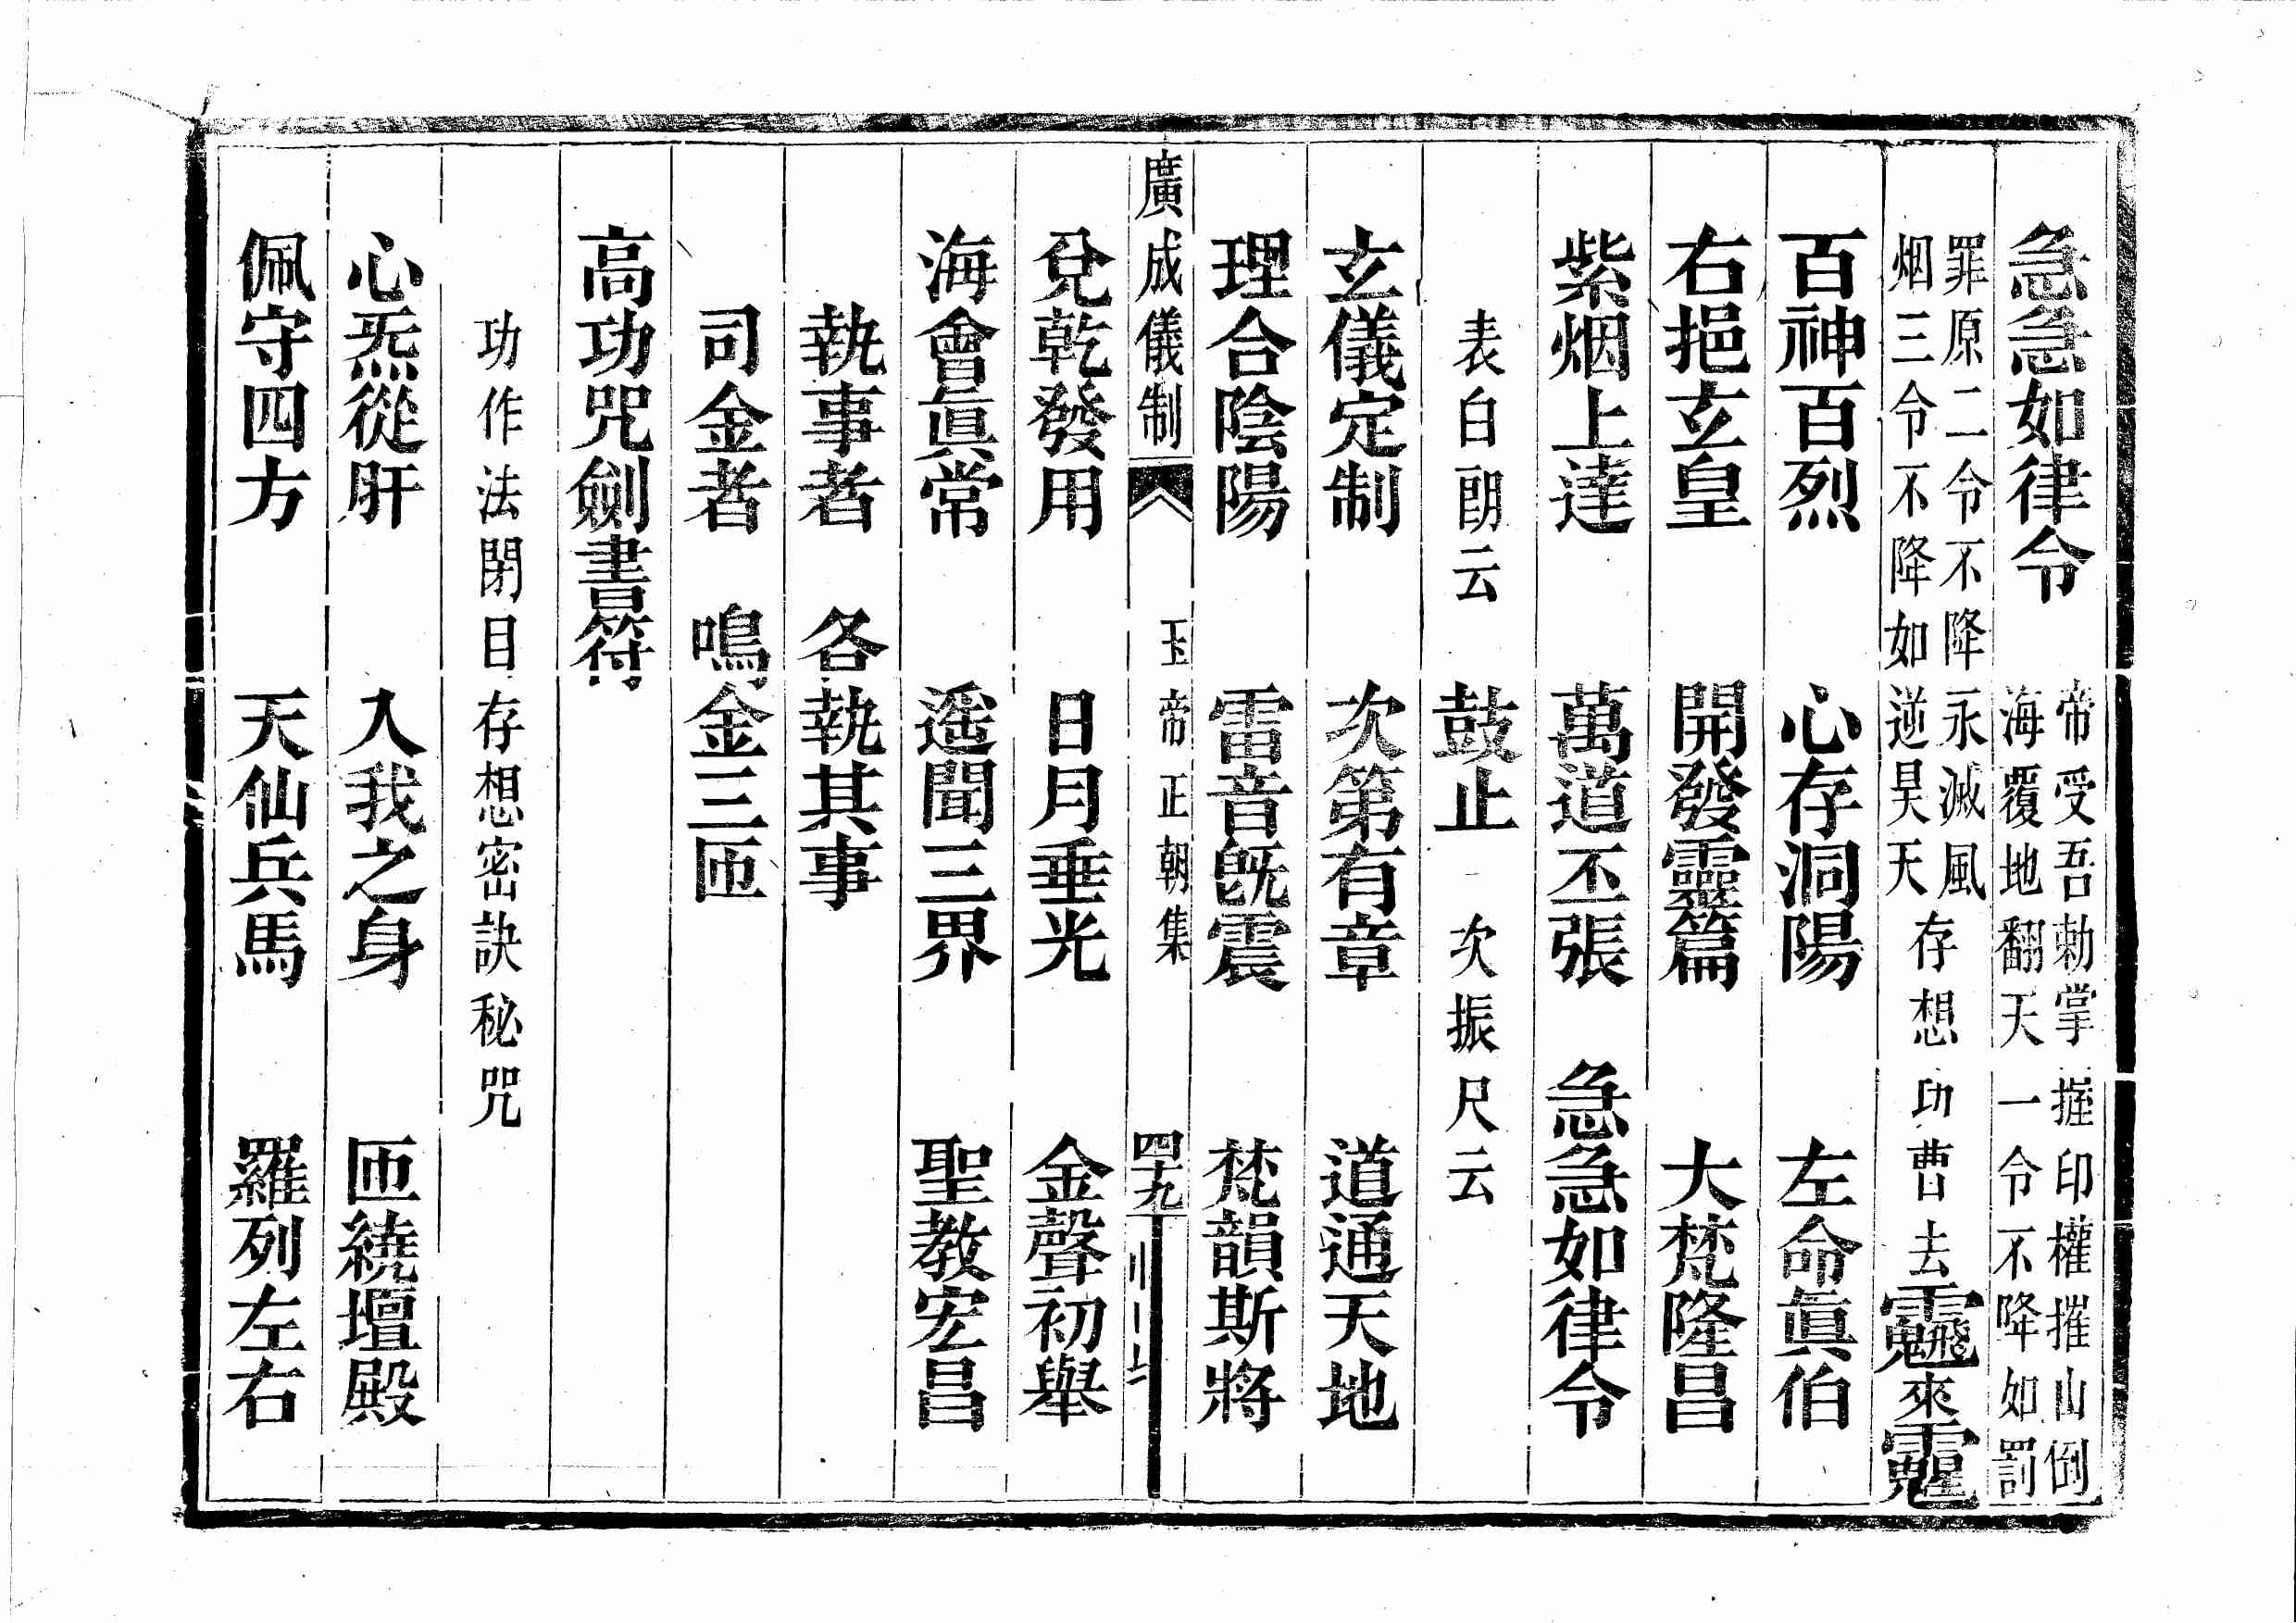 急急如律令 帝受吾勅掌握印權摧山倒
海覆地翻天一令不降如罰
罪原二令不降永滅風
烟三令不降如逆昊天 存想功曹去來
百神百烈 心存洞陽 左命眞伯
右挹玄皇 開發靈篇 大梵隆昌
紫烟上達 萬道丕張 急急如律令
表白朗云 鼓止 次振尺云
玄儀定制 次第有章 道通天地
理合陰陽 雷音旣震 梵韻斯將
廣成儀制 玉帝正朝集 四九
兌乾發用 日月垂光 金聲初舉
海會眞常 遥聞三界 聖教宏昌
執事者 各執其事
司金者 鳴金三匝
高功咒劍書符
功作法閉目存想密訣秘咒
心炁從肝 入我之身 匝繞壇殿
佩守四方 天仙兵馬 羅列左右